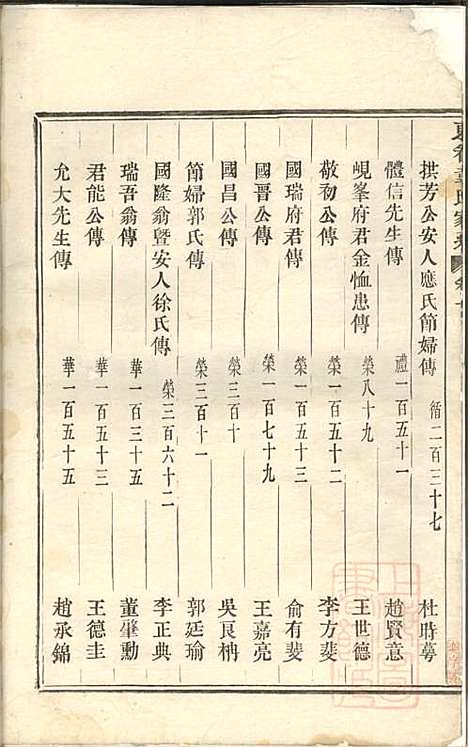 拱芳公安人應氏節婦傳 循二百三十七 杜時芳
體信先生傳 禮一百五十一 趙賢意
峴峯府君金恤患傳 榮八十九 王世德
敬初公傳 榮一百五十二 李方斐
國瑞府君傳 榮一百五十三 俞有斐
國晉公傳 榮一百七十九 王嘉亮
國昌公傳 榮三百十 吳良柟
節婦郭氏傳 榮三百十一 郭廷瑜
國隆翁暨安人徐氏傳 榮三百六十二 李正典
瑞吾翁傳 華一百三十五 董肇勳
君能公傳 華一百五十三 王德圭
允大先生傳 華一百五十五 趙承錦